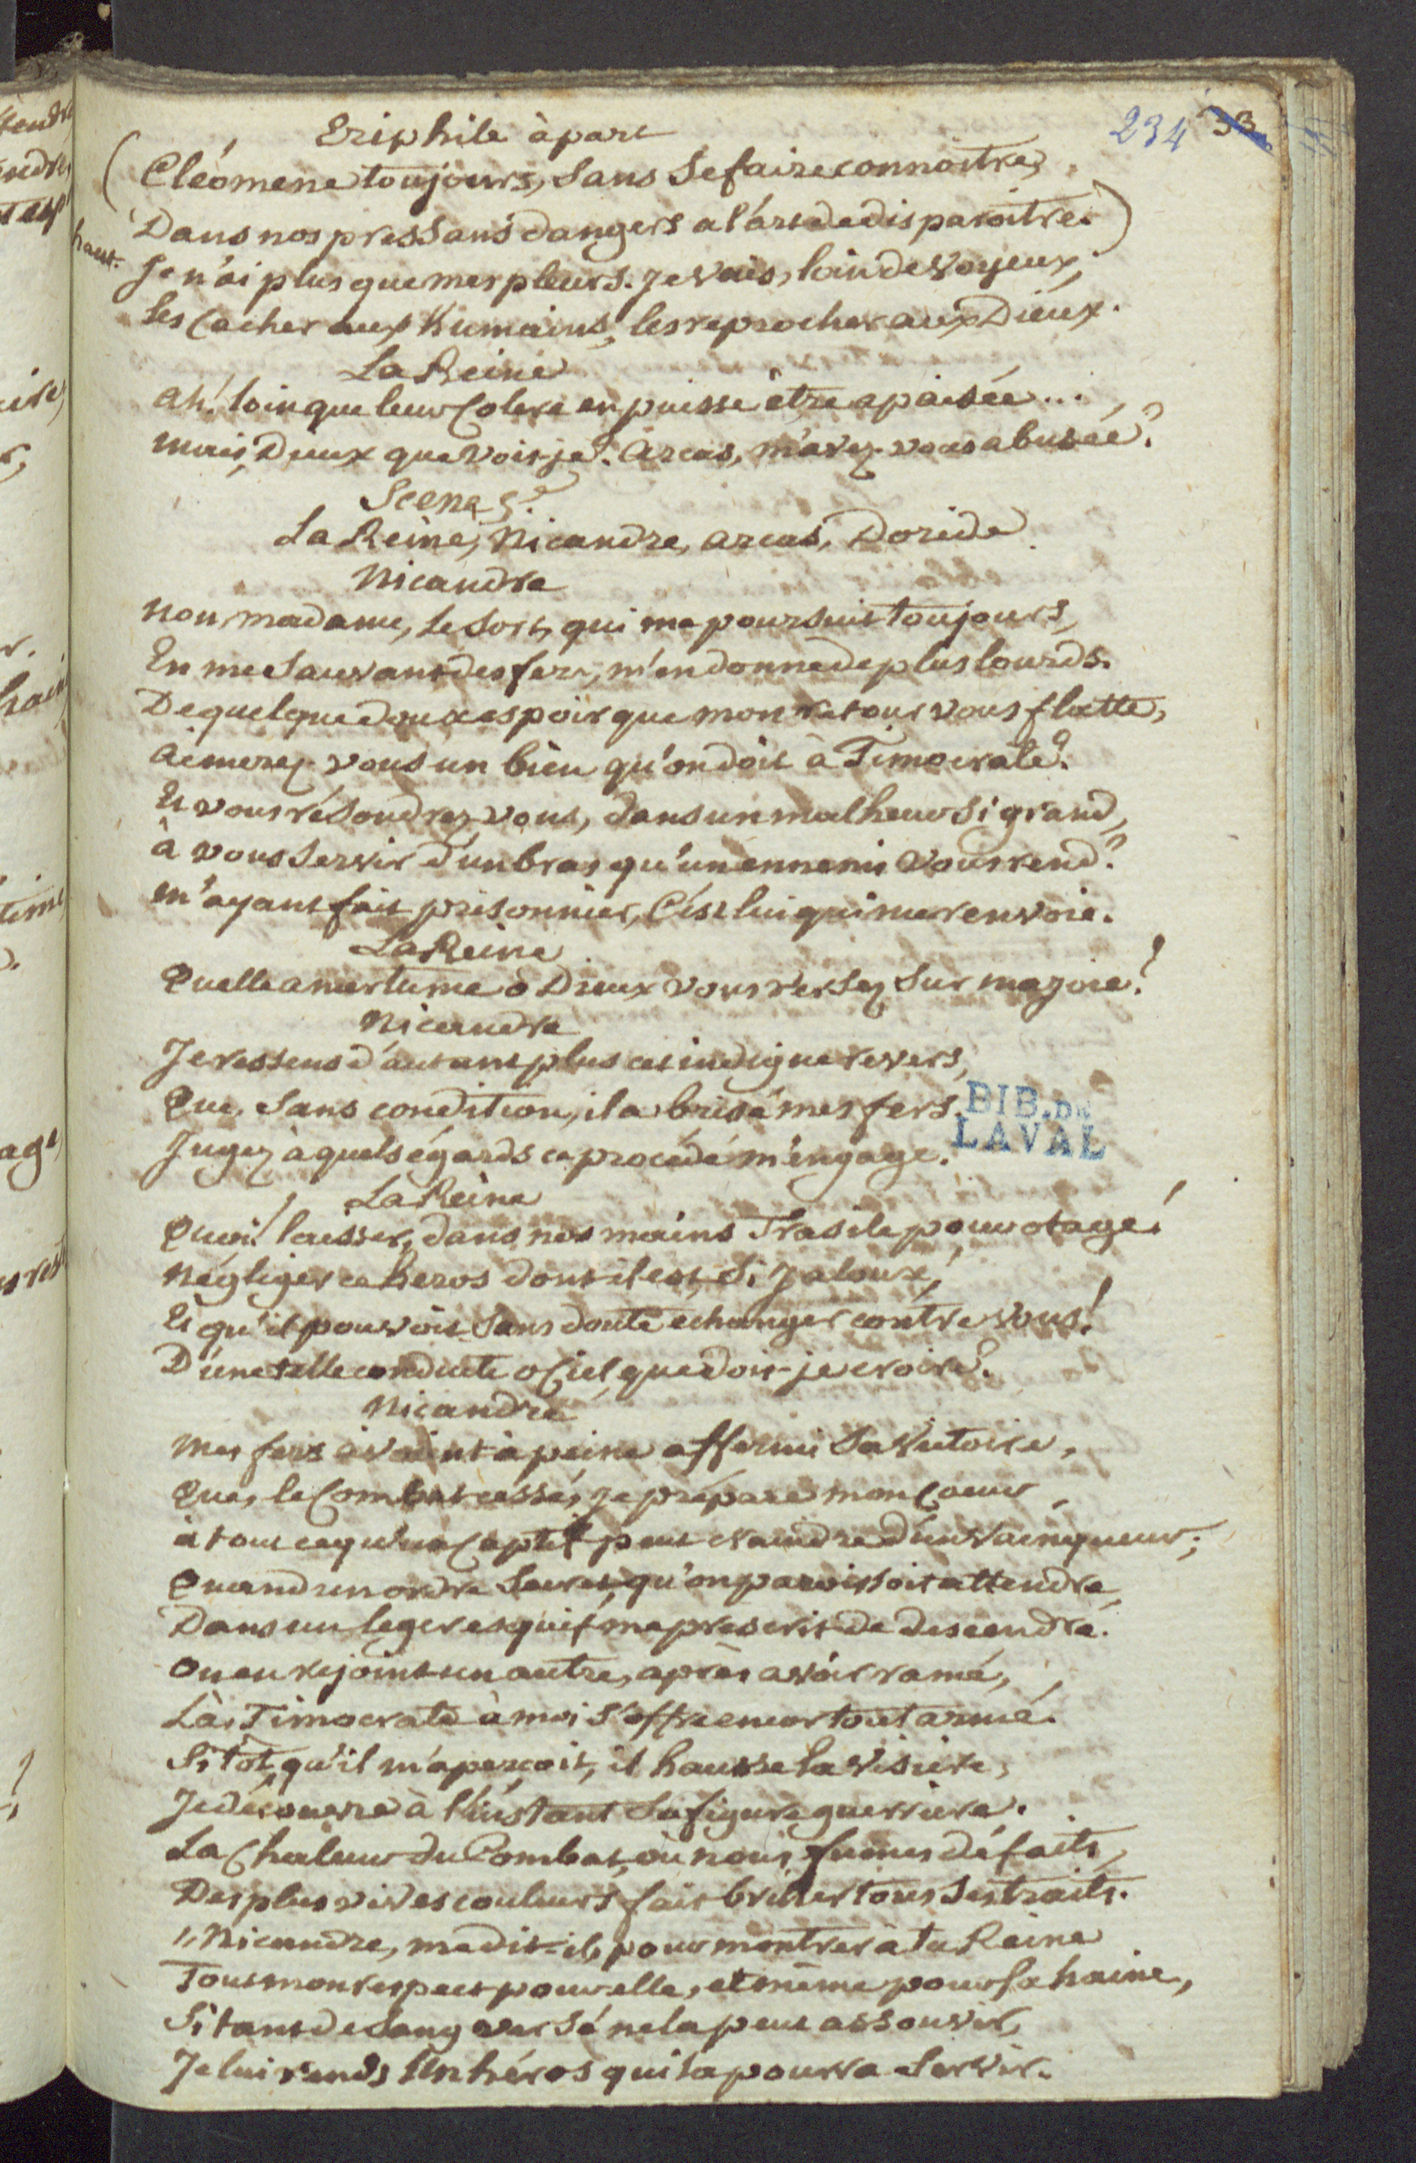 234 33
Eriphile à part
(Cléomene toujours, Sans Se faire connoitre,
Dans nos pressans dangers a l'art de disparoitre.)
haut.
Je n'ai plus que mes pleurs. Je vais, loin de vos yeux,
Les Cacher aux humains, les reprocher aux Dieux.
La Reine
ah! loin que leur Colere en puisse être apaisée...
mais, Dieux que vois-je? Arcas, m'avez-vous abusée?
Scene 5.e
La Reine, Nicandre, arcas, Doride
Nicandre
Non, madame, le Sort, qui me poursuit toujours,
En me Sauvant des fers, m'en donne de plus lourds.
De quelque doux espoir que mon retour vous flatte,
aimerez-vous un bien qu'on doit à Timocrate?
Et vous résoudrez-vous, dans un malheur Si grand,
à vous Servir d'un bras qu'un ennemi vous rend?
m'ayant fait prisonnier, C'est lui qui me renvoie.
La Reine
Quelle amertume ô Dieux vous versez Sur ma joie!
Nicandre
Je ressens d'autant plus cet indigne revers,
Que, Sans condition, il a brisé mes fers.
Jugez à quels égards ce procédé m'engage.
BIB. DE
LAVAL
La Reine
Quoi! laisser, dans nos mains Trasile pour otage!
Négliger ce heros dont il est Si jaloux,
Et qu'il pouvoit Sans doute echanger contre vous!
D'une telle conduite o Ciel, que dois-je croire?
Nicandre
Mes fers avaient à peine affermi Sa victoire,
Que, le Combat cessé, je prépare mon Coeur
à tout ce qu'un Captif peut craindre d'un vainqueur;
Quand un ordre Secret, qu'on paroissoit attendre,
Dans un leger esquif me prescrit de descendre.
On en rejoint un autre, après avoir ramé,
Là, Timocrate à moi S'offre encor tout armé.
Sitôt qu'il m'aperçoit, il hausse la visiere,
Je découvre à l'instant Sa figure guerriere.
La Chaleur du Combat, où nous fumes défaits,
Des plus vives couleurs fait briller tous Ses traits.
"Nicandre, me dit-il, pour montrer à ta Reine
Tout mon respect pour elle, et même pour Sa haine,
Si tant de Sang versé ne la peut assouvir,
Je lui rends Un héros qui la pourra Servir.